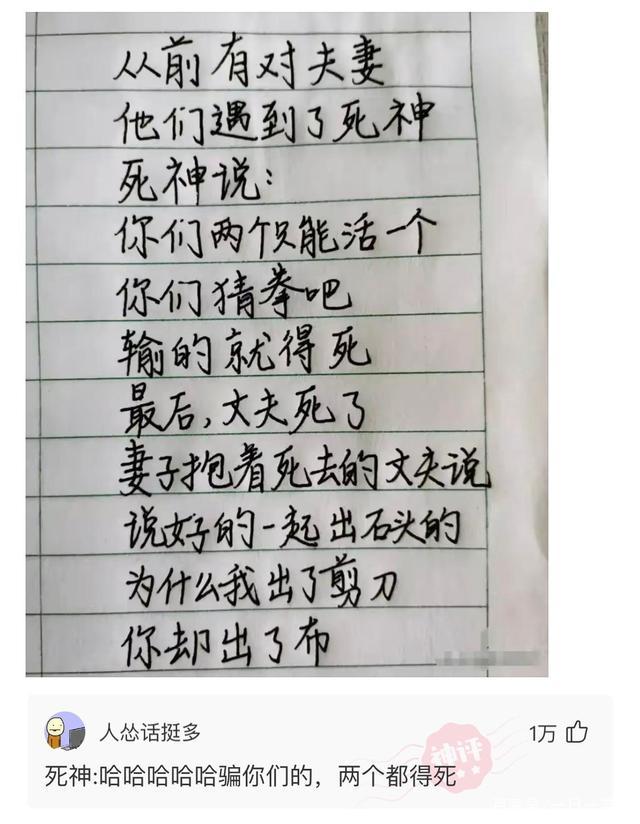 从前有对夫妻
他们遇到了死神
死神说:
你们两个只能活一个
你们猜拳吧
输的就得死
最后,丈夫死了
妻子抱着死去的丈夫说
说好的一起出石头的
为什么我出了剪刀
你却出了布
人怂话挺多
1万
神评
死神:哈哈哈哈哈骗你们的，两个都得死